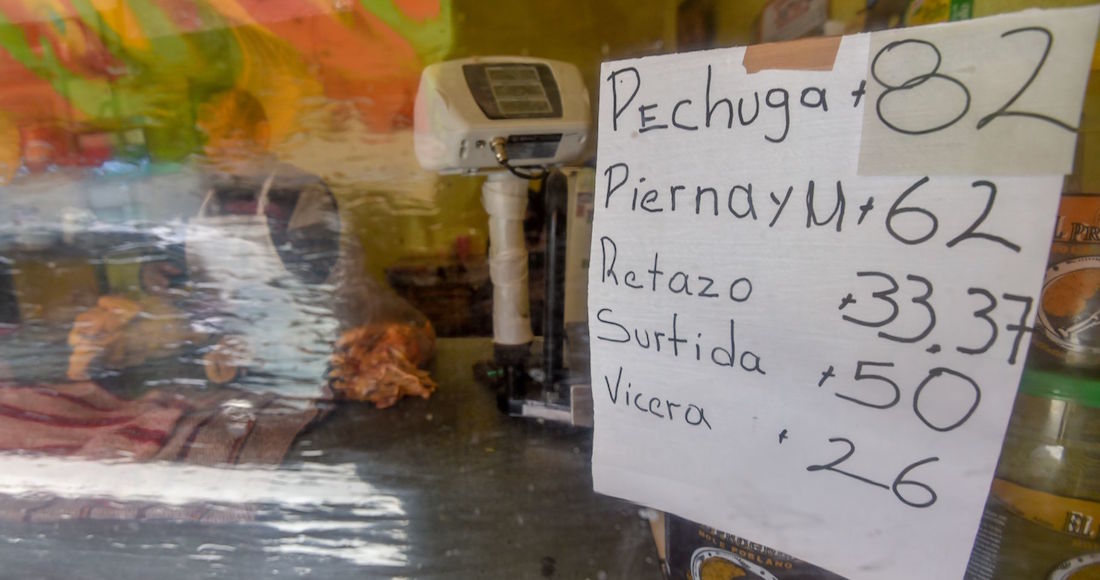 Pechuga + 82
Pierna y M + 62
Retazo + 33.37
Surtida + 50
Vicera + 26
L PR
EL
MOLE POBLANO